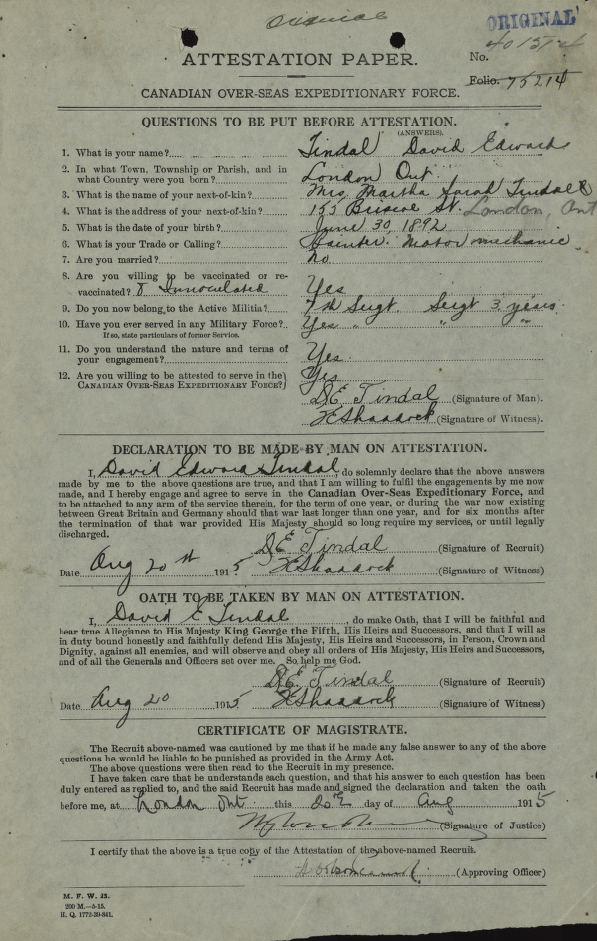 Original
ORIGINAL
ATTESTATION PAPER.
No. 401574
Folio. 75214
CANADIAN OVER-SEAS EXPEDITIONARY FORCE.
QUESTIONS TO BE PUT BEFORE ATTESTATION.
(ANSWERS).
1. What is your name? Tindal David Edward
2. In what Town, Township or Parish, and in
what Country were you born? London Ont.
3. What is the name of your next-of-kin? Mrs. Martha Sarah Tindall
4. What is the address of your next-of-kin? 155 Briscoe St. London, Ont
5. What is the date of your birth? June 30, 1892
6. What is your Trade or Calling? Painter. Motor mechanic
7. Are you married? No.
8. Are you willing to be vaccinated or re-
vaccinated? & Innoculated Yes
9. Do you now belong to the Active Militia? 7th Sergt. 3 years.
10. Have you ever served in any Military Force? Yes " " "
If so, state particulars of former Service.
11. Do you understand the nature and terms of
your engagement? Yes.
12. Are you willing to be attested to serve in the
CANADIAN OVER-SEAS EXPEDITIONARY FORCE? Yes
D.E. Tindal (Signature of Man).
(Signature of Witness).
DECLARATION TO BE MADE BY MAN ON ATTESTATION.
I, David Edward Tindal, do solemnly declare that the above answers
made by me to the above questions are true, and that I am willing to fulfil the engagements by me now
made, and I hereby engage and agree to serve in the Canadian Over-Seas Expeditionary Force, and
to be attached to any arm of the service therein, for the term of one year, or during the war now existing
between Great Britain and Germany should that war last longer than one year, and for six months after
the termination of that war provided His Majesty should so long require my services, or until legally
discharged.
D.E. Tindal (Signature of Recruit)
Date Aug 20th 1915 (Signature of Witness)
OATH TO BE TAKEN BY MAN ON ATTESTATION.
I, David E Tindal, do make Oath, that I will be faithful and
bear true Allegiance to His Majesty King George the Fifth, His Heirs and Successors, and that I will as
in duty bound honestly and faithfully defend His Majesty, His Heirs and Successors, in Person, Crown and
Dignity, against all enemies, and will observe and obey all orders of His Majesty, His Heirs and Successors,
and of all the Generals and Officers set over me. So help me God.
D.E. Tindal (Signature of Recruit)
Date Aug 20 1915 (Signature of Witness)
CERTIFICATE OF MAGISTRATE.
The Recruit above-named was cautioned by me that if he made any false answer to any of the above
questions he would be liable to be punished as provided in the Army Act.
The above questions were then read to the Recruit in my presence.
I have taken care that he understands each question, and that his answer to each question has been
duly entered as replied to, and the said Recruit has made and signed the declaration and taken the oath
before me, at London Ont. this 20th day of Aug 1915
(Signature of Justice)
I certify that the above is a true copy of the Attestation of the above-named Recruit.
(Approving Officer)
M. F. W. 23.
200 M.—5-15.
H. Q. 1772-39-841.